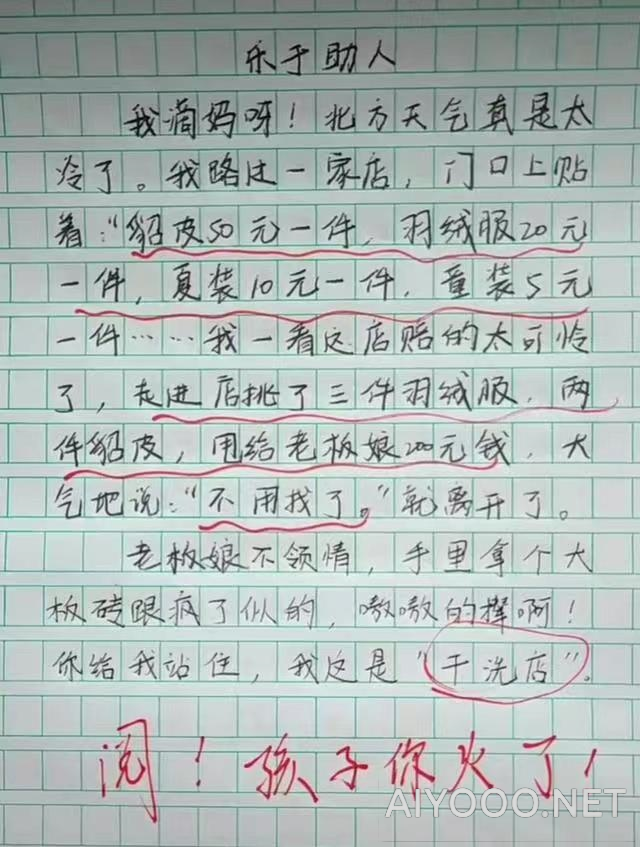 乐于助人
我滴妈呀！北方天气真是太
冷了。我路过一家店，门口上贴
着："貂皮50元一件，羽绒服20元
一件，夏装10元一件，童装5元
一件……我一看这店赔的太可怜
了，走进店挑了三件羽绒服，两
件貂皮，甩给老板娘200元钱，大
气地说："不用找了。"就离开了。
老板娘不领情，手里拿个大
板砖跟疯了似的，嗷嗷的撵啊！
你给我站住，我这是"干洗店"。
阅！孩子你火了！
AIYOOO.NET